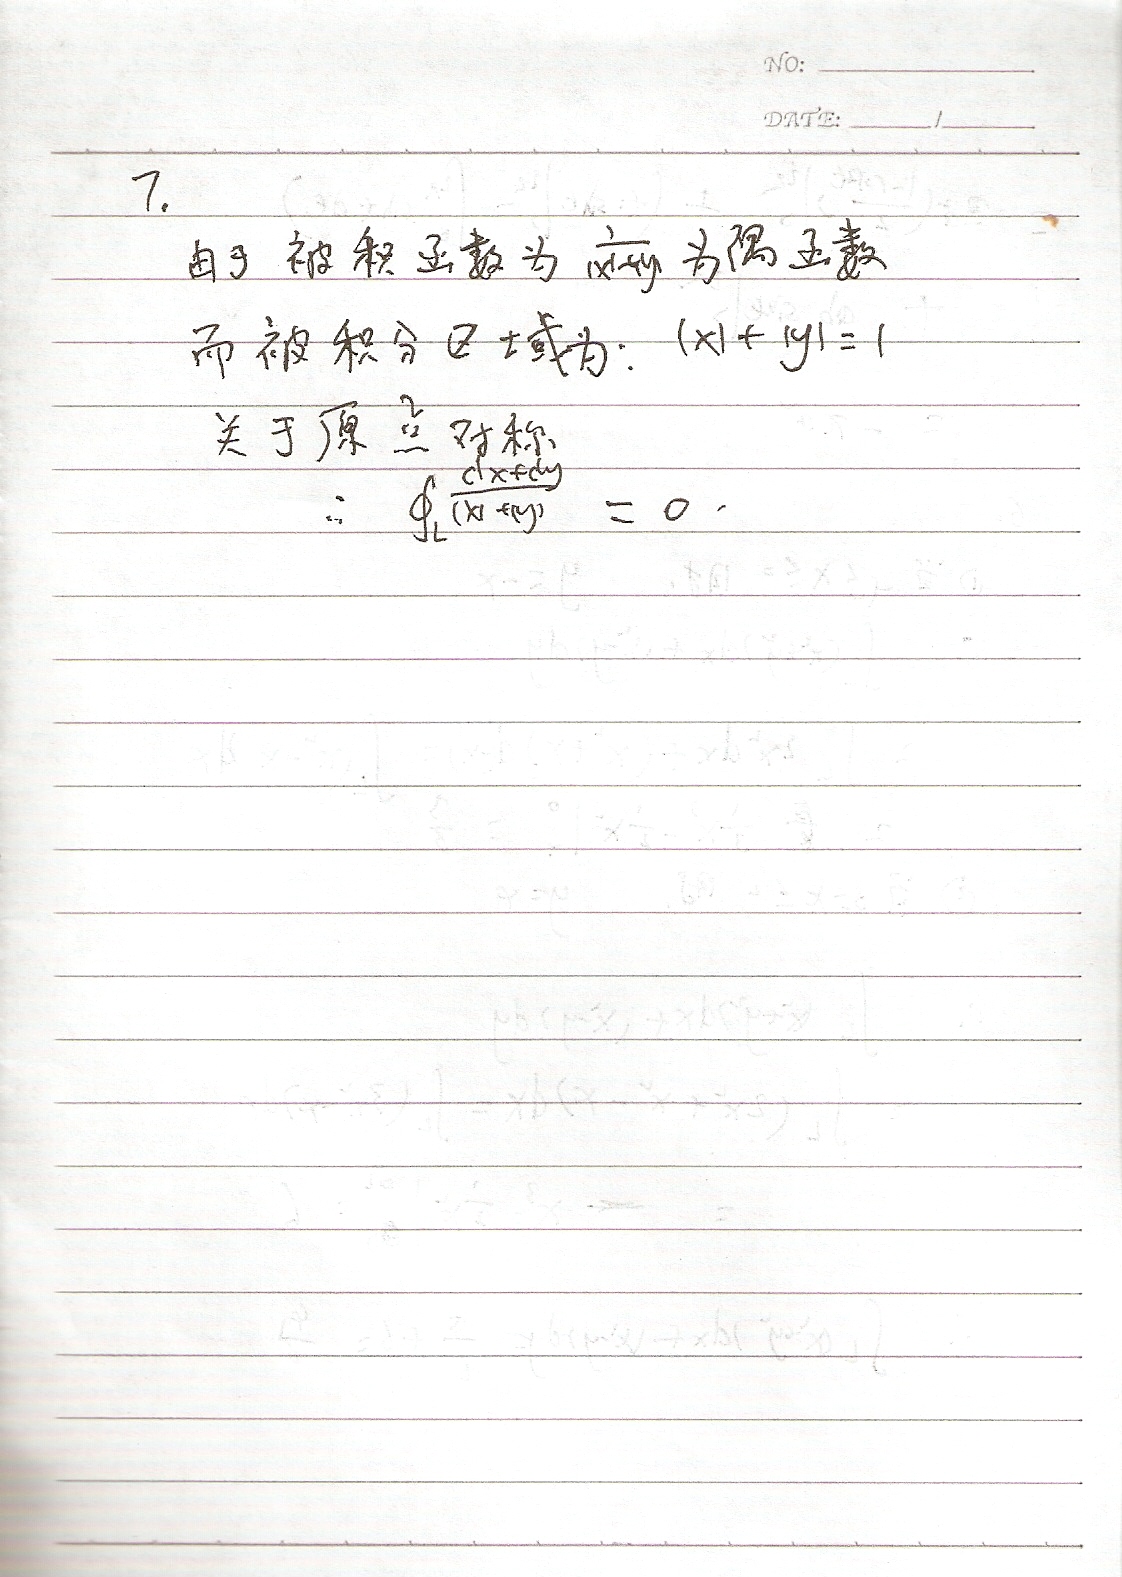 NO:
DATE: /
7.
由于被积函数为 1/(|x|+|y|) 为隅函数
而被积分区域为: |x|+|y|=1
关于原点对称
∴ ∮_L (dx+dy)/(|x|+|y|) = 0.